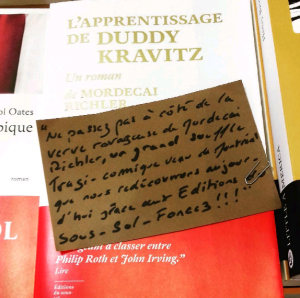 L'APPRENTISSAGE
DE DUDDY
KRAVITZ
Un roman
de MORDECAI
RICHLER
ol Oates
pique
roman
"Ne passez pas à côté de la
verve ravageuse de Mordecai
Richler, un grand souffle
Tragi-comique venu de Montréal
que nous redécouvrons aujour-
d'hui grâce aux Editions
Sous-Sol-Foncez!!!!"
OL
à classer entre
Philip Roth et John Irving."
Lire
Editions
du sous-